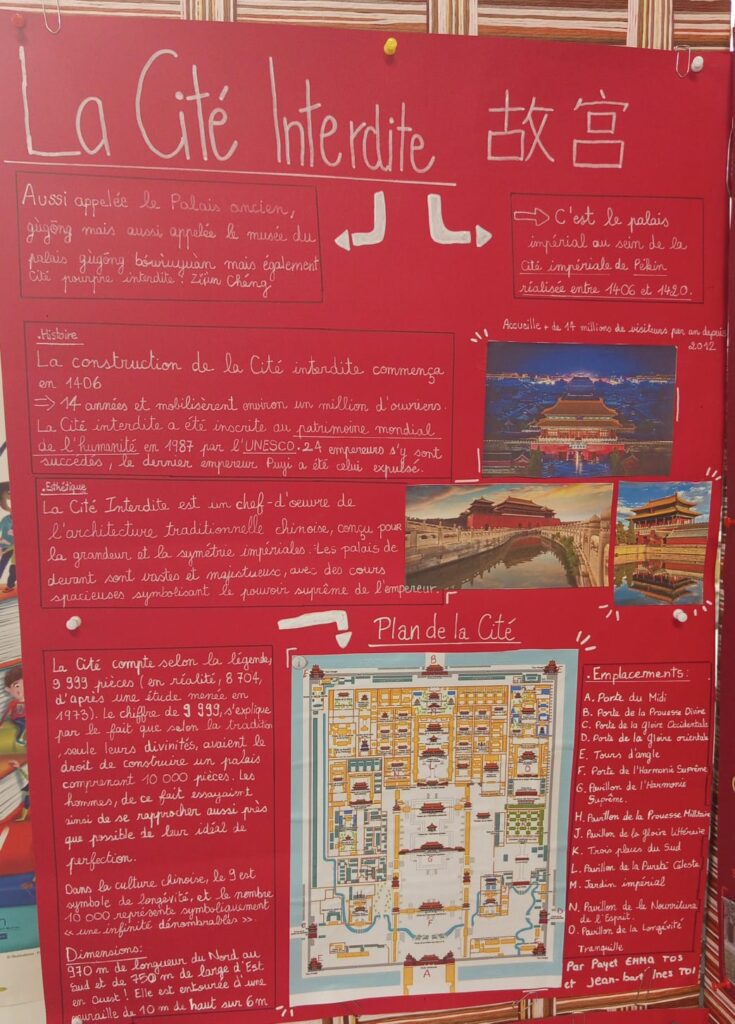 La Cité Interdite 故宫
Aussi appelée le Palais ancien,
gùgōng mais aussi appelée le musée du
palais gùgōng bówùyuàn mais également
Cité pourpre interdite : Zǐjìn Chéng
⇒ C'est le palais
impérial au sein de la
Cité impériale de Pékin
réalisée entre 1406 et 1420.
Accueille + de 14 millions de visiteurs par an depuis
2012
.Histoire
La construction de la Cité interdite commença
en 1406
⇒ 14 années et mobilisèrent environ un million d'ouvriers.
La Cité interdite a été inscrite au patrimoine mondial
de l'humanité en 1987 par l'UNESCO. 24 empereurs s'y sont
succédés, le dernier empereur Puyi a été celui expulsé.
.Esthétique
La Cité Interdite est un chef-d'oeuvre de
l'architecture traditionnelle chinoise, conçu pour
la grandeur et la symétrie impériales. Les palais de
devant sont vastes et majestueux, avec des cours
spacieuses symbolisant le pouvoir suprême de l'empereur.
Plan de la Cité
La Cité compte selon la légende,
9 999 pièces (en réalité, 8 704,
d'après une étude menée en
1973). Le chiffre de 9 999, s'explique
par le fait que selon la tradition
, seule leurs divinités, avaient le
droit de construire un palais
comprenant 10 000 pièces. Les
hommes, de ce fait essayaient
ainsi de se rapprocher aussi près
que possible de leur idéal de
perfection.
Dans la culture chinoise, le 9 est
symbole de longévité, et le nombre
10 000 représente symboliquement
« une infinité dénombrables »
Dimensions:
970 m de longueur du Nord au
Sud et de 750 m de large d'Est
en Ouest ! Elle est entourée d'une
muraille de 10 m de haut sur 6 m
B
G
F
A
.Emplacements:
A. Porte du Midi
B. Porte de la Prouesse Divine
C. Porte de la Gloire Occidentale
D. Porte de la Gloire orientale
E. Tours d'angle
F. Porte de l'Harmonie Suprême
G. Pavillon de l'Harmonie
Suprême.
H. Pavillon de la Prouesse Militaire
J. Pavillon de la gloire littéraire
K. Trois places du Sud
L. Pavillon de la Pureté Céleste
M. Jardin impérial
N. Pavillon de la Nourriture
de l'Esprit.
O. Pavillon de la Longévité
Tranquille
Par Payet EMMA TO5
et Jean-bart Ines TO1